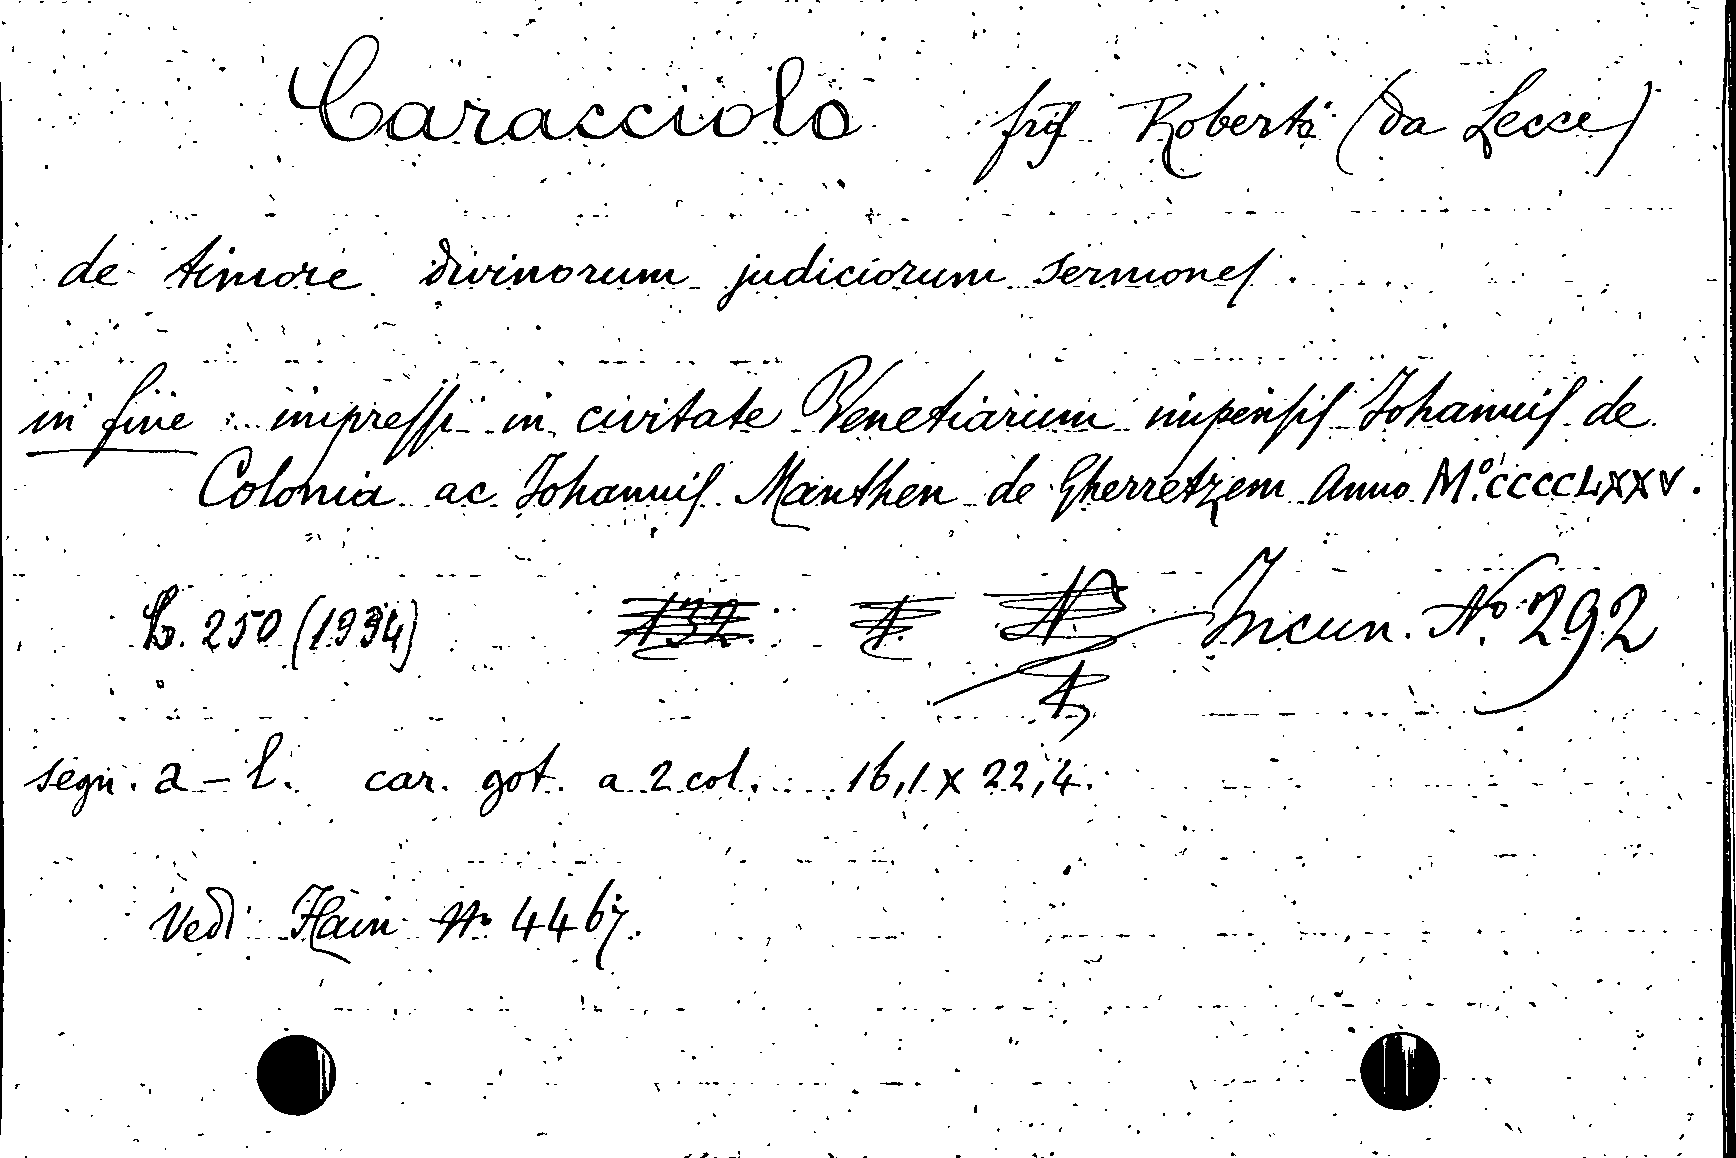 Caracciolo fris Roberti (da Lecce)
de timore divinorum judiciorum sermones.
in fine : impressi in civitate Venetiarum impensis Johannis de
Colonia ac Johannis Manthen de Gherretzem Anno Mº.CCCCLXXV.
L. 250 (1934) 132. Incun. Nº. 292
segn. a - l. car. got. a 2 col. 16,1 x 22,4.
Vedi Hain Nº 4467.